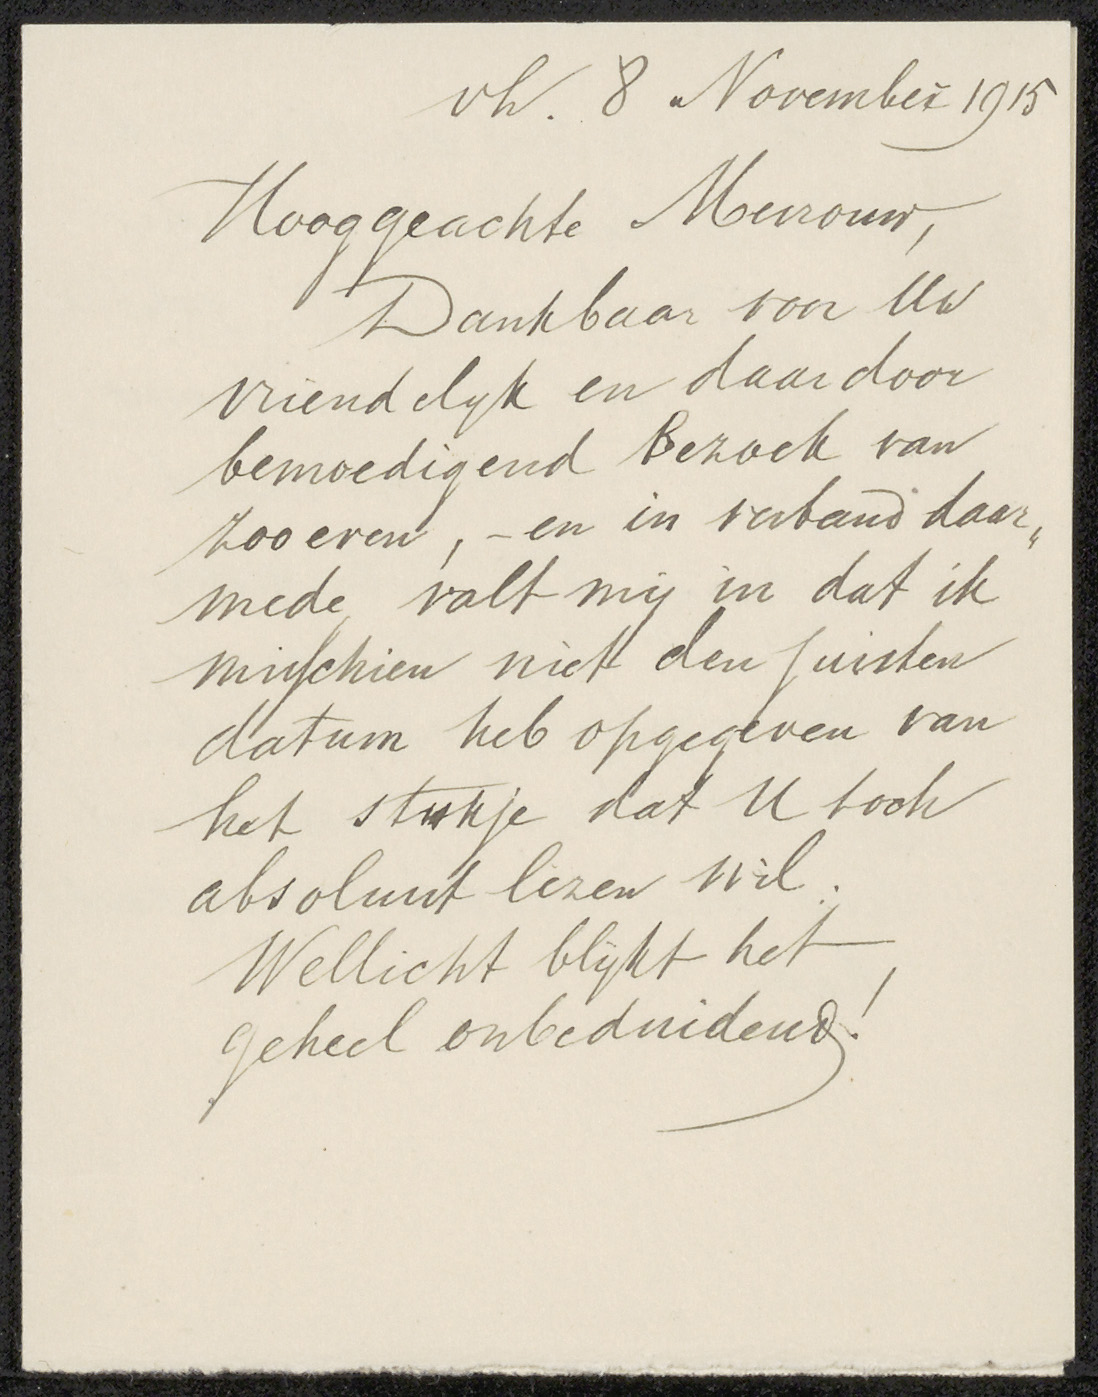 vh. 8 November 1915
Hooggeachte Mevrouw,
Dankbaar voor Uw
vriendelyk en daardoor
bemoedigend Bezoek van
zooeven, - en in verband daar„
mede, valt mij in dat ik
misschien niet den juisten
datum heb opgegeven van
het stukje dat U toch
absoluut lezen wil.
Wellicht blijkt het
geheel onbeduidend!